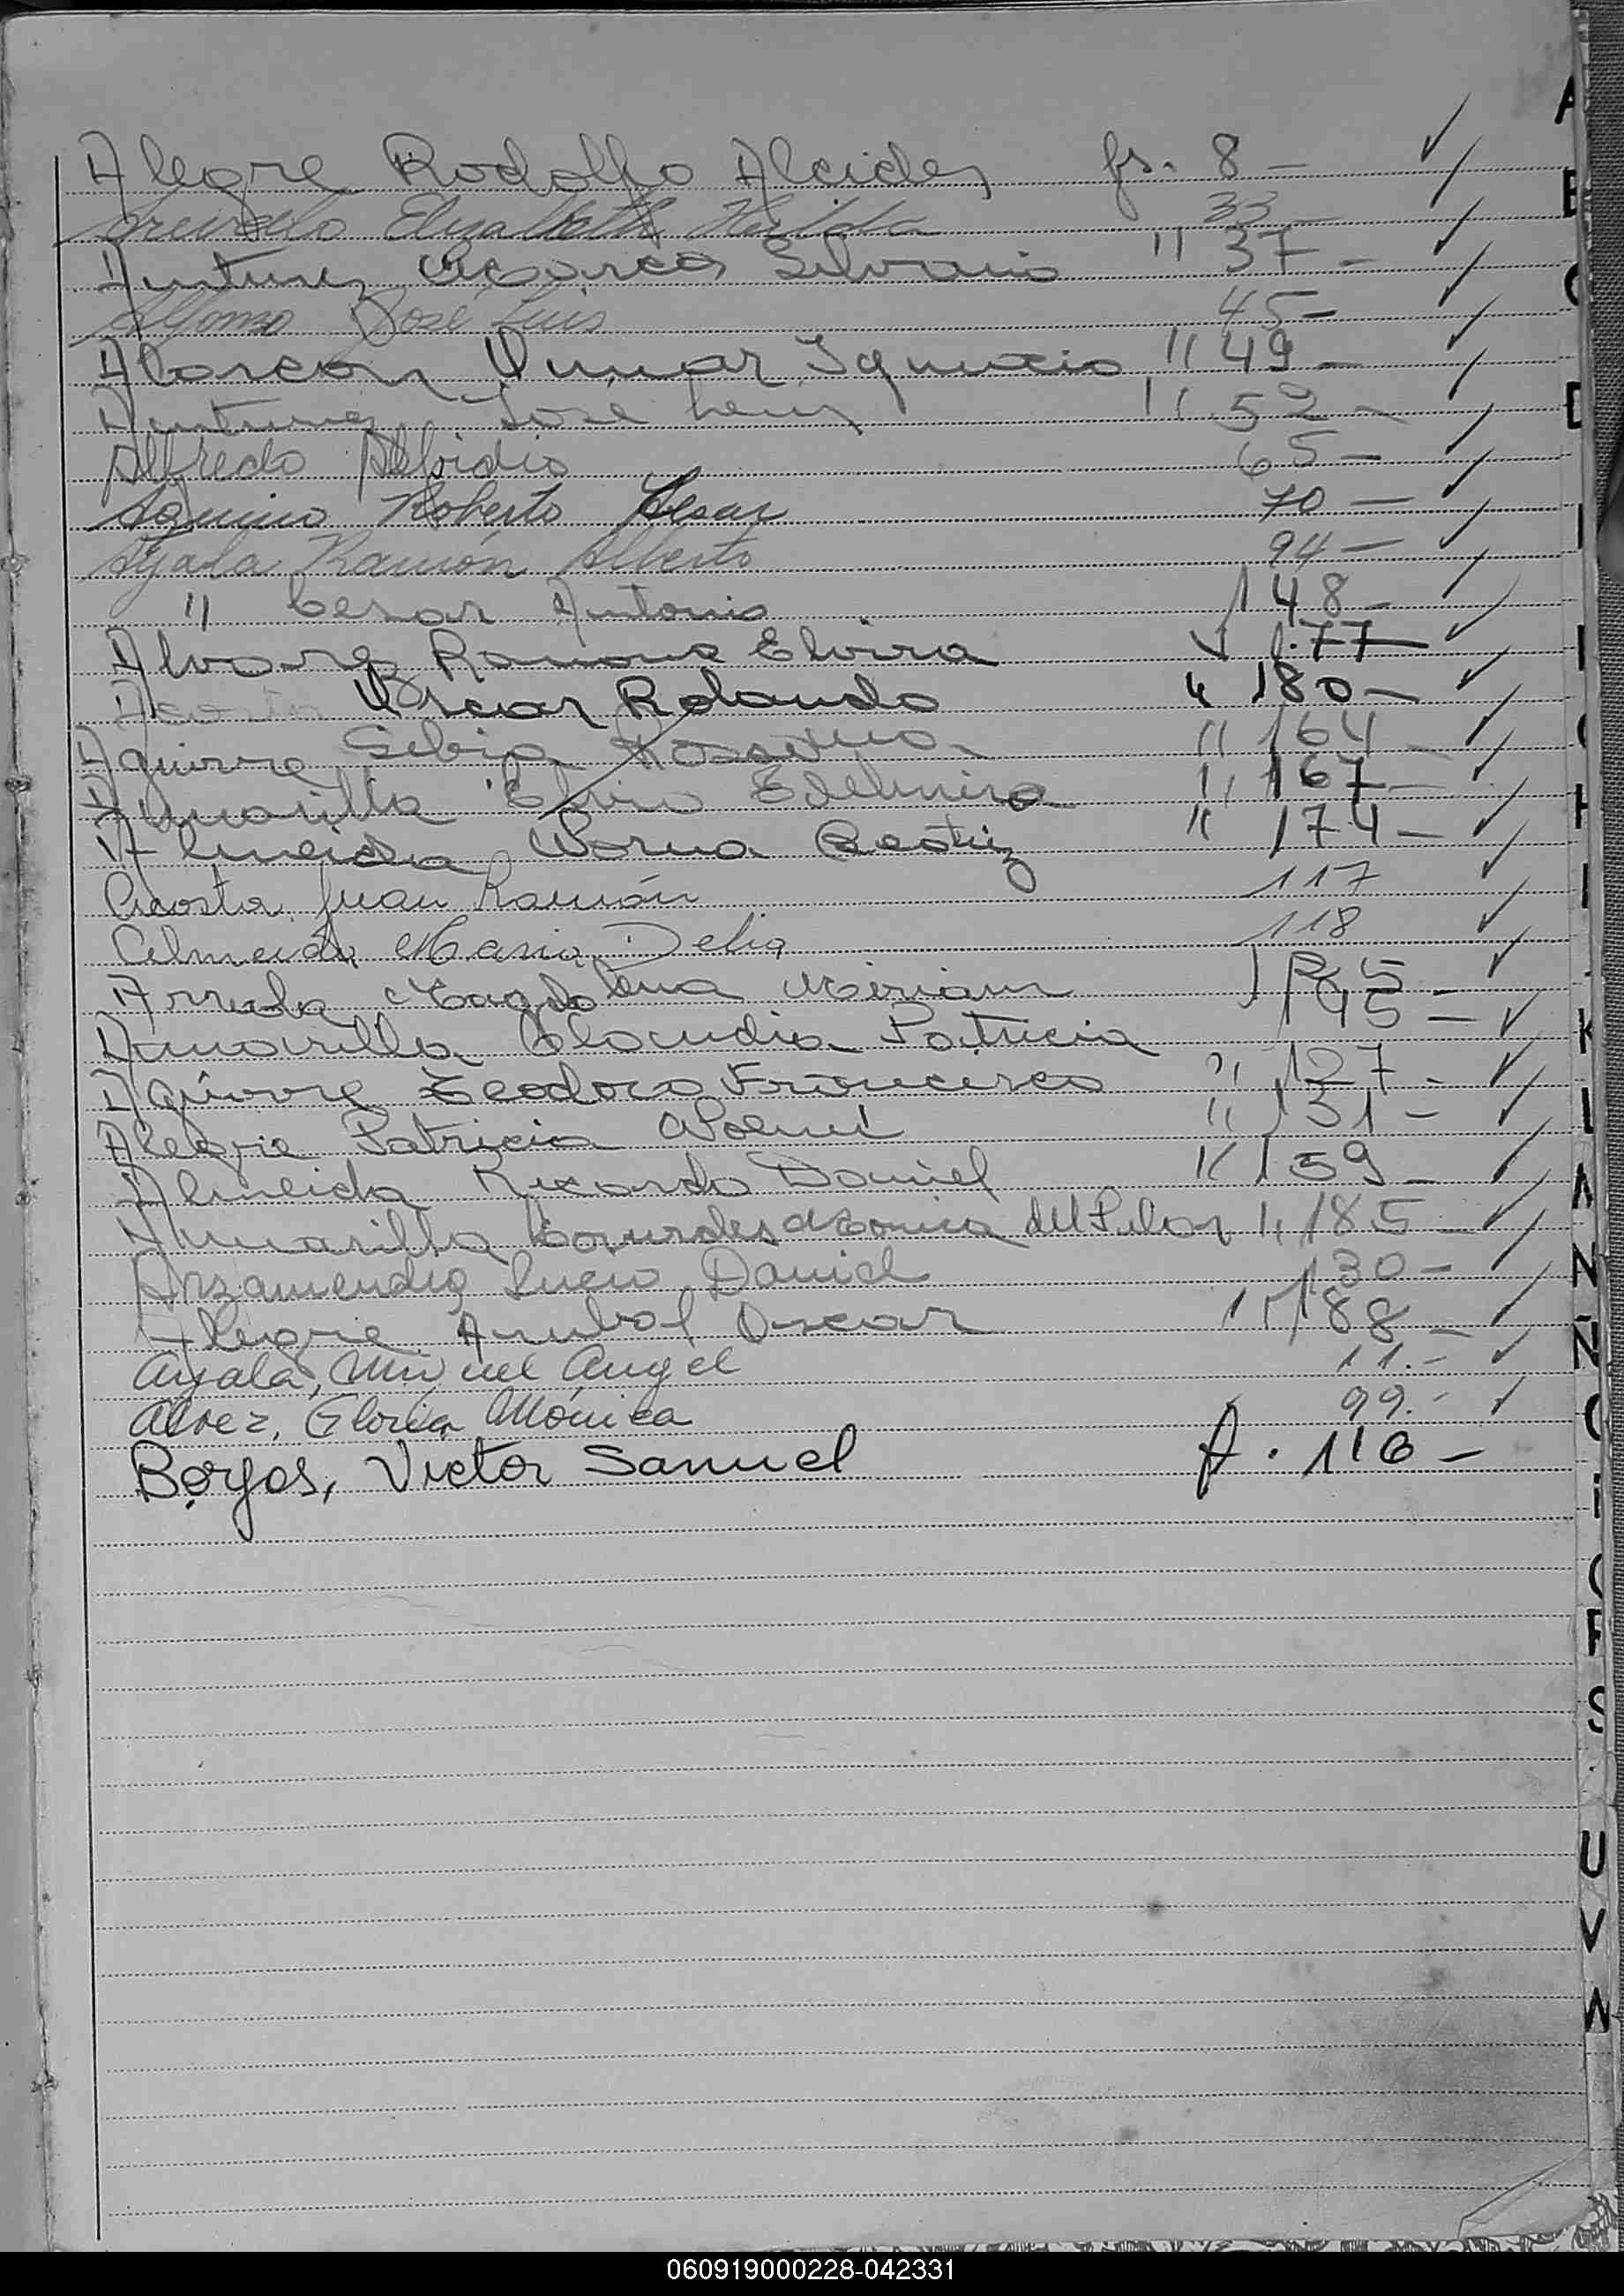 Alegre Rodolfo Alcides fs. 8 - ✓
Elizabeth Hilda 33 - ✓
Antunez Marcos Silvano " 37 - ✓
Alfonso José Luis 45 - ✓
Alarcon Omar Ignacio " 49 - ✓
Antunez Jose Luis " 52 - ✓
Alfredo 65 - ✓
Aquino Roberto Cesar 70 - ✓
Ayala Ramón Alberto 94 - ✓
" Cesar Antonio 148 - ✓
Alvarez Ramona Elvira 177 - ✓
Acosta Oscar Rolando " 180 - ✓
Aguirre Silvia Rossana " 164 - ✓
Amarilla Edelmira " 167 - ✓
Almeida Norma Beatriz " 174 - ✓
Acosta, Juan Ramón 117 ✓
Almeida Maria Delia 118 ✓
Magdalena Miriam ✓
Amarilla Claudia Patricia 145 - ✓
Aguirre Teodoro Francisco " 127 - ✓
Alegre Patricia Noemi " 131 - ✓
Almeida Ricardo Daniel " 159 - ✓
Amarilla Lourdes Monica del Pilar " 185 - ✓
Arzamendia Lucio Daniel 130 - ✓
Alegre Anibal Oscar " 188 - ✓
Ayala, Miguel Angel 11.- ✓
Alvez, Gloria Mónica 99.- ✓
Borjas, Victor Samuel f. 116 -
A
B
C
D
H
K
L
N
Ñ
S
U
V
W
060919000228-042331